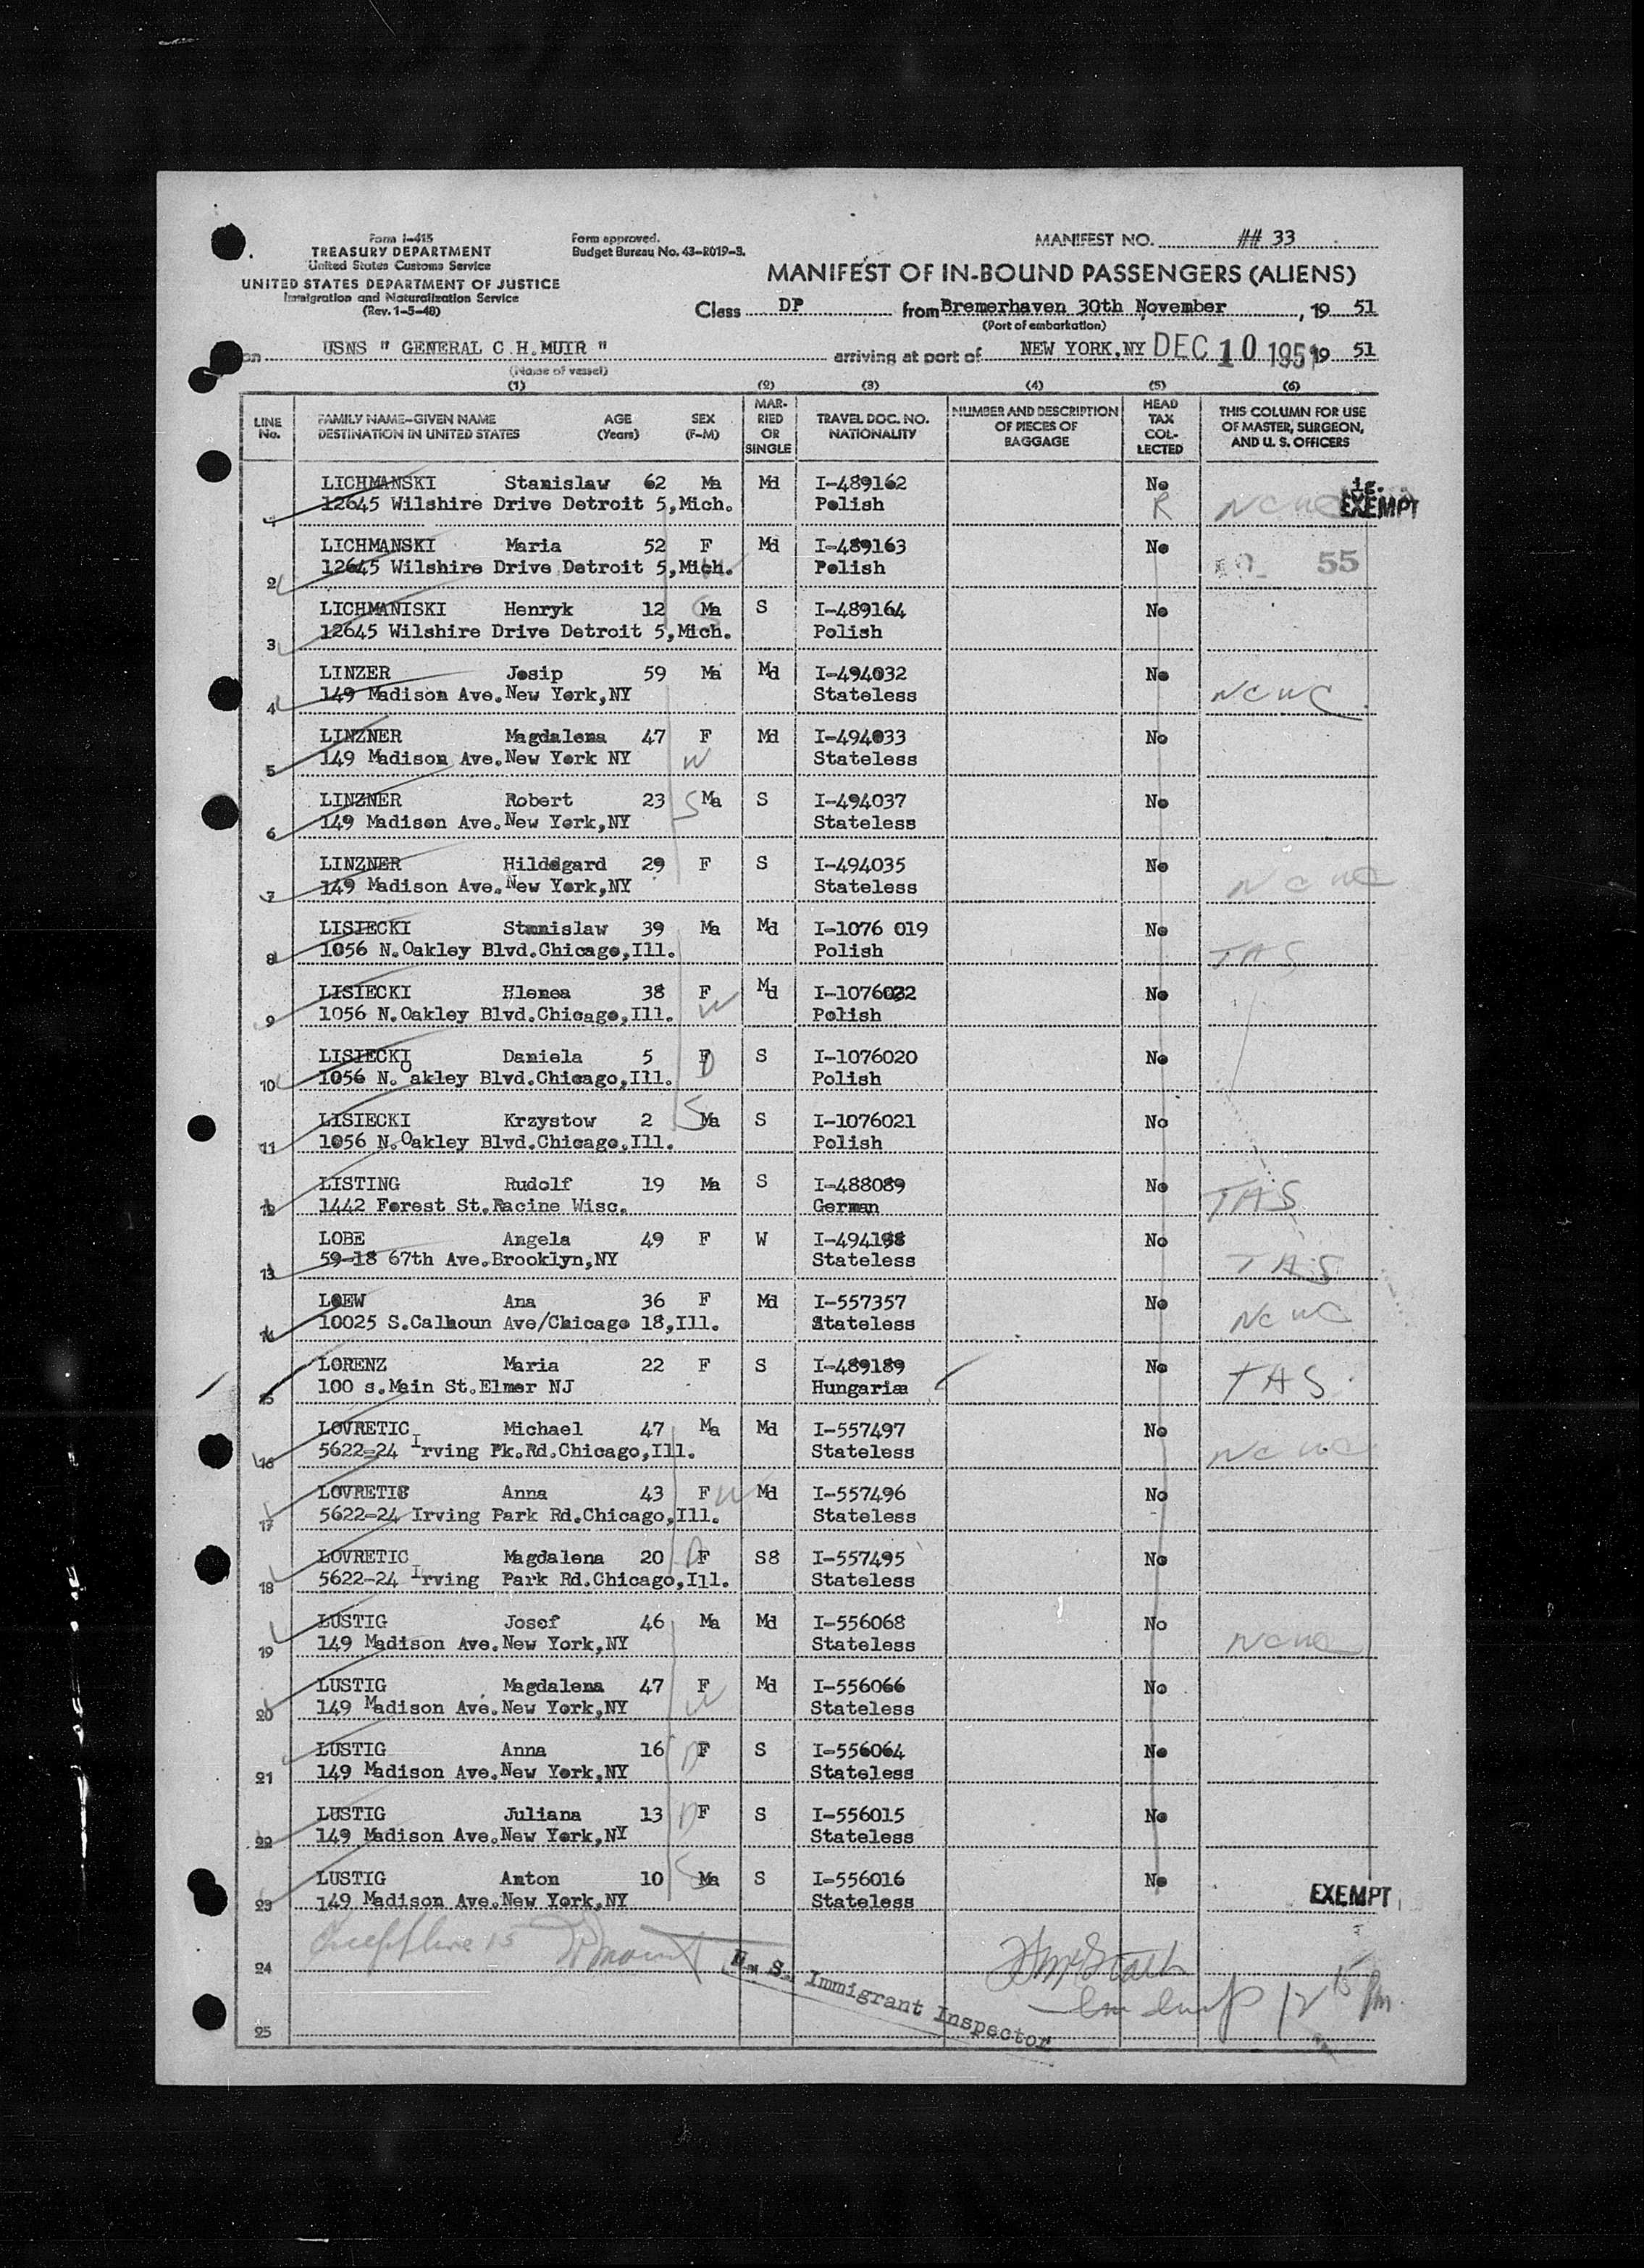 Form I-415
TREASURY DEPARTMENT
United States Customs Service
UNITED STATES DEPARTMENT OF JUSTICE
Immigration and Naturalization Service
(Rev. 1-5-48)
Form approved.
Budget Bureau No. 43-R019-3.
MANIFEST NO. ## 33
MANIFEST OF IN-BOUND PASSENGERS (ALIENS)
Class DP from Bremerhaven 30th November, 19 51
(Port of embarkation)
on USNS " GENERAL C.H.MUIR " arriving at port of NEW YORK.NY DEC 10 1951 19 51
(Name of vessel)
(1) (2) (3) (4) (5) (6)
LINE No. FAMILY NAME—GIVEN NAME DESTINATION IN UNITED STATES AGE (Years) SEX (F-M) MARRIED OR SINGLE TRAVEL DOC. NO. NATIONALITY NUMBER AND DESCRIPTION OF PIECES OF BAGGAGE HEAD TAX COLLECTED THIS COLUMN FOR USE OF MASTER, SURGEON, AND U. S. OFFICERS
LICHMANSKI Stanislaw 62 Ma Md I-489162 No NCWC EXEMPT
1 12645 Wilshire Drive Detroit 5,Mich. Polish R
LICHMANSKI Maria 52 F Md I-489163 No 55
2 12645 Wilshire Drive Detroit 5,Mich. Polish
LICHMANISKI Henryk 12 Ma S I-489164 No
3 12645 Wilshire Drive Detroit 5,Mich. Polish
LINZER Josip 59 Ma Md I-494032 No
4 149 Madison Ave.New York,NY Stateless NCWC
LINZNER Magdalena 47 F Md I-494033 No
5 149 Madison Ave.New York NY W Stateless
LINZNER Robert 23 S Ma S I-494037 No
6 149 Madison Ave.New York,NY Stateless
LINZNER Hildegard 29 F S I-494035 No
7 149 Madison Ave.New York,NY Stateless NCWC
LISIECKI Stanislaw 39 Ma Md I-1076 019 No
8 1056 N.Oakley Blvd.Chicago,Ill. Polish TAS
LISIECKI Hlenea 38 F Md I-1076022 No
9 1056 N.Oakley Blvd.Chicago,Ill. W Polish
LISIECKI Daniela 5 F D S I-1076020 No
10 1056 N.Oakley Blvd.Chicago,Ill. Polish
LISIECKI Krzystow 2 S Ma S I-1076021 No
11 1056 N.Oakley Blvd.Chicago.Ill. Polish
LISTING Rudolf 19 Ma S I-488089 No TAS
12 1442 Forest St.Racine Wisc. German
LOBE Angela 49 F W I-494198 No
13 59-18 67th Ave.Brooklyn,NY Stateless TAS
LOEW Ana 36 F Md I-557357 No
14 10025 S.Calhoun Ave/Chicago 18,Ill. Stateless NCWC
LORENZ Maria 22 F S I-489189 No
15 100 s.Main St.Elmer NJ Hungaria TAS
LOVRETIC Michael 47 Ma Md I-557497 No
16 5622=24 Irving Pk.Rd.Chicago,Ill. Stateless NCWC
LOVRETIS Anna 43 F W Md I-557496 No
17 5622=24 Irving Park Rd.Chicago,Ill. Stateless
LOVRETIC Magdalena 20 D F S8 I-557495 No
18 5622-24 Irving Park Rd.Chicago,Ill. Stateless
LUSTIG Josef 46 Ma Md I-556068 No
19 149 Madison Ave.New York,NY Stateless NCWC
LUSTIG Magdalena 47 F Md I-556066 No
20 149 Madison Ave.New York,NY W Stateless
LUSTIG Anna 16 D F S I-556064 No
21 149 Madison Ave.New York,NY Stateless
LUSTIG Juliana 13 D F S I-556015 No
22 149 Madison Ave.New York,NY Stateless
LUSTIG Anton 10 S Ma S I-556016 No EXEMPT
23 149 Madison Ave.New York,NY Stateless
24 Except line 15
U. S. Immigrant Inspector
25